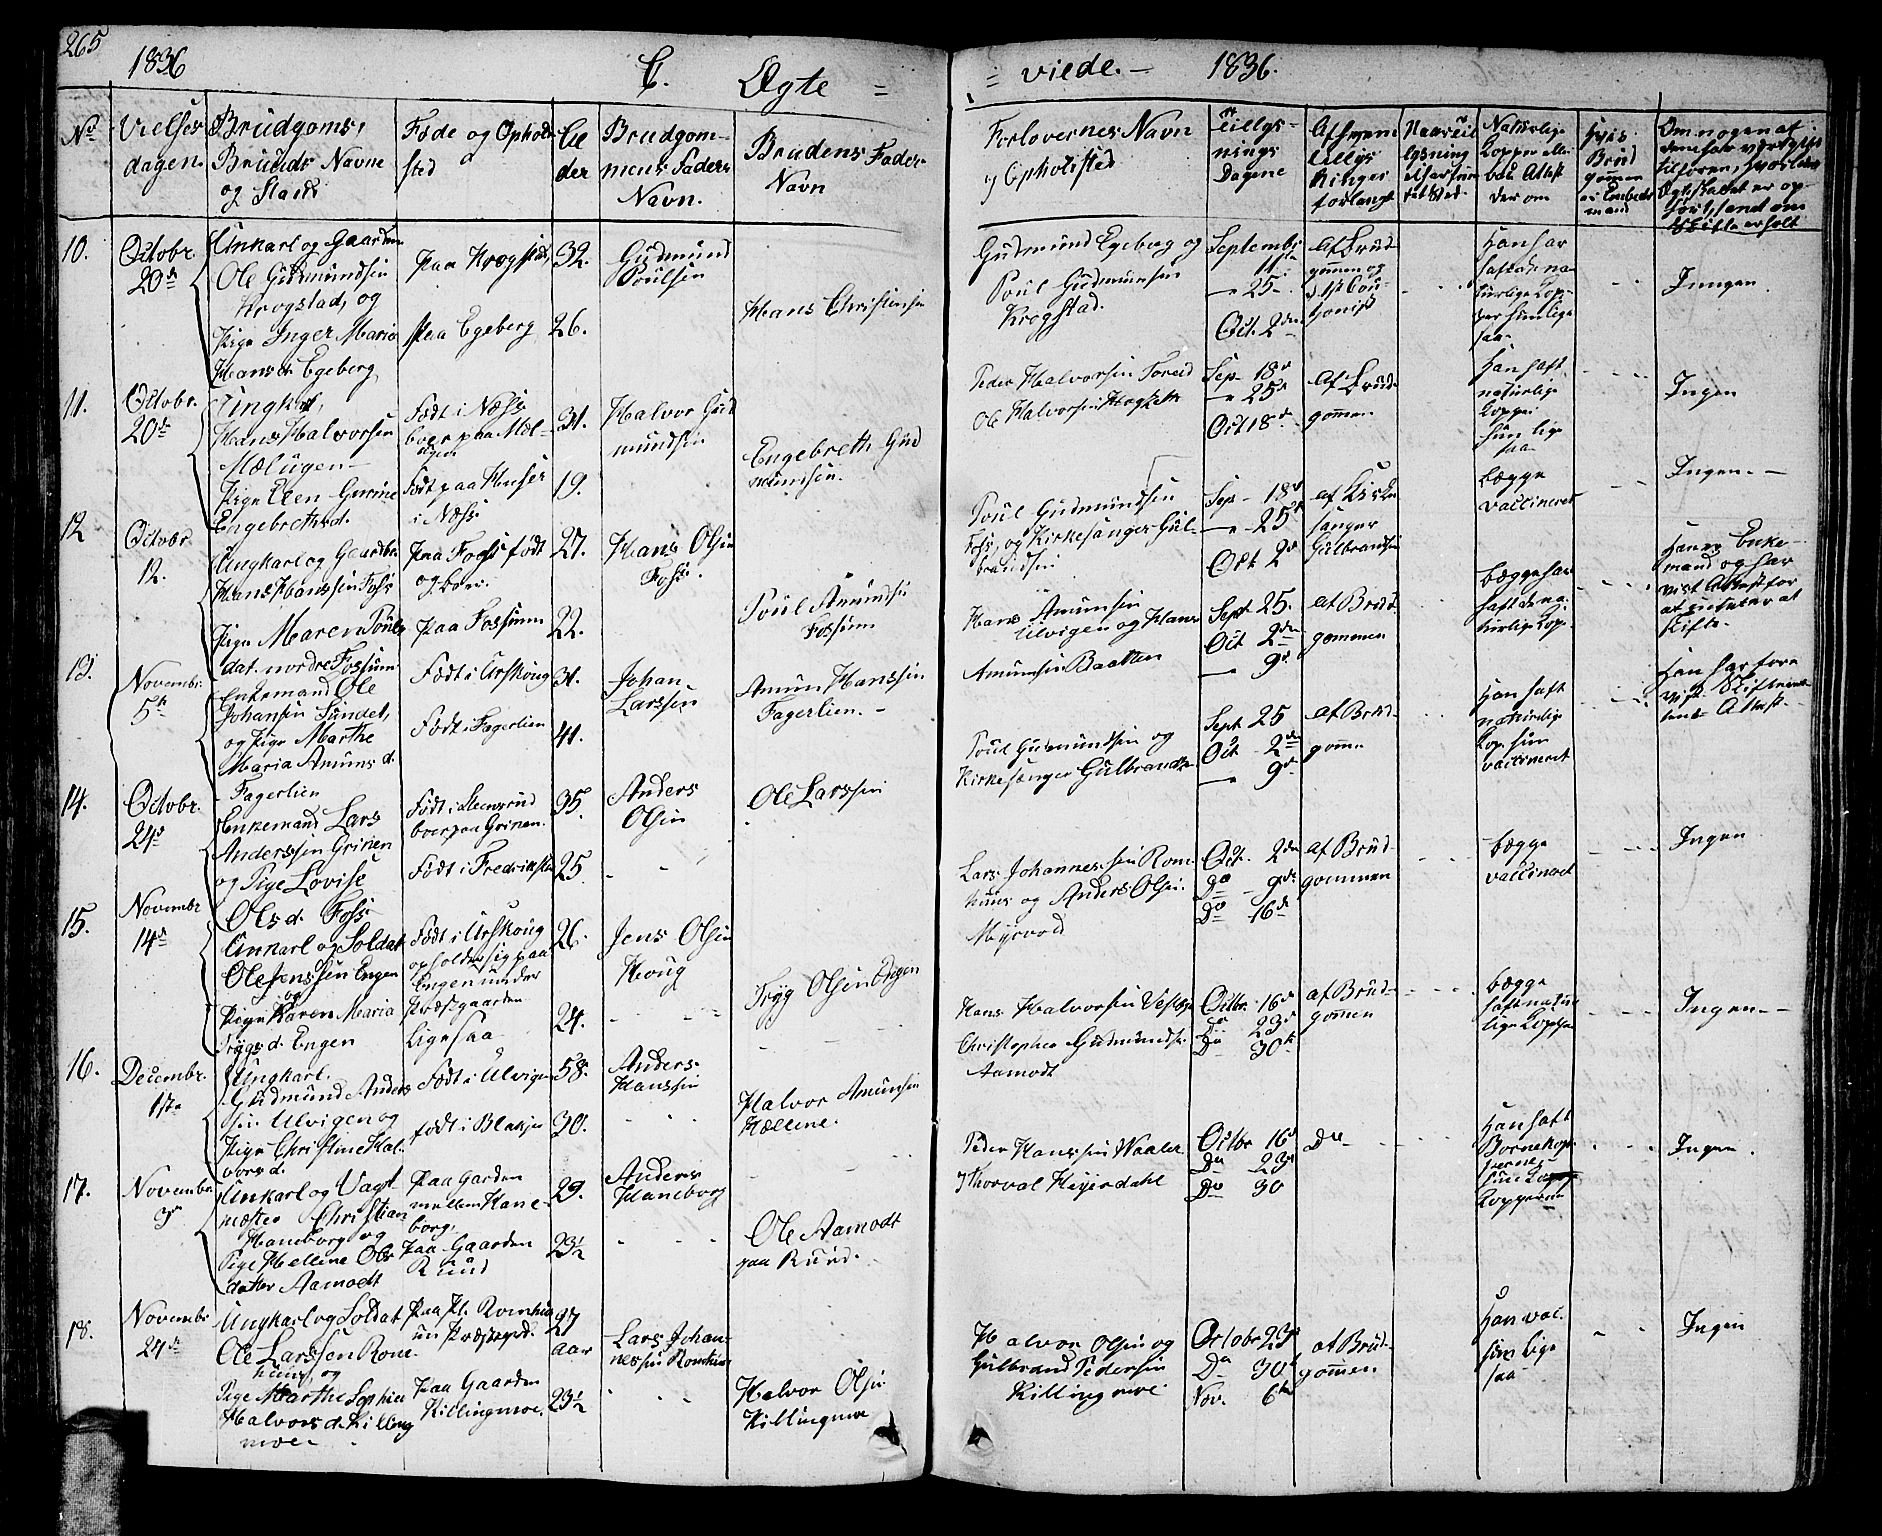 265
1836
C. Ægte =
= viede. — 1836.
No
Vielses
dagen
Brudgoms,
Bruuds Navne
og Stand
Føde og Ophold
sted
Al
der
Brudgom-
mens Faders
Navn.
Brudens Fader
Navn
Forlovernes Navn
og Opholdsted
Tillys-
nings
Dagene
Af hvem
Tillys
ningen
forlangt
Naar Til
lysning
Naturlige
Kopper eller
Hvis
Brud
gommen
er Embeds
mand
10.
Octobr.
20de
Unkarl og Gaardm
Ole Gudmundsen
Krogstad, og
Pige Inger Maria
Hansd. Egeberg
Paa Krogstad
Paa Egeberg
32.
26.
Gudmund
Poulsen
Hans Christensen
Gudmund Egeberg og
Poul Gudmunsen
Krogstad.
Septembr
11te
— 25
Oct. 2den
Af Brud
gommen og
Han har
haft de na-
turlige Kop-
per hun lige
saa
Inngen
11.
Octobr.
20de
Ungkarl,
Hans Halvorsen
Mælugen —
Pige Elen Gurine
Engebrethsd.
Født i Næss
boer paa Mæl-
ugen
Født paa Huser
i Næss
31.
19.
Halvor Gud
mundsen
Engebreth Gud
mundsen.
Peder Halvorsen Foreid
Ole Halvorsen
Sep. 18de
— 25de
Oct 18de
Af Brud
gommen
Han haft
naturlige
Kopper
hun lige
saa
Ingen
12
Octobr
12.
Ungkarl og Gaardbr.
Hans Hanssen Foss
Pige Maren Pouls
dat. nordre Fossum
Paa Foss født
og boer.
Paa Fossum
27.
22.
Hans Olsen
Foss.
Poul Amundsen
Fossum
Poul Gudmundsen
Foss, og Kirkesanger Gul-
brandsen
Sep — 18de
— 25de
Oct 2de
af Kirke
sanger
Gulbrandsen
begge
vaccineret
Ingen. —
13.
Novembr.
5te
Enkemand Ole
Johansen Sundet,
og Pige Marthe
Maria Amunsd.
Fagerlien
Født i Urskoug
Født i Fagerlien
31.
41.
Johan
Larssen
Amun Hanssen
Fagerlien. —
Hans Amunsen
Ulvigen og Hans
Amunsen Baakken
Sept 25.
Oct 2den
— 9de
af Brud
gommen
begge har
haft de na-
turlige Kop.
Han er Enke-
mand og har
vist Attest for
skifte.
14.
Octobr.
24de
Enkemand Lars
Anderssen Grinen
og Pige Lovise
Olsd. Foss
boer paa Grinen.
Født i Fredrikste
35.
25.
Anders
Olsen
Ole Larssen
Poul Gudmundsen og
Kirkesanger Gulbrandsen
Sept. 25
Oct 2den
— 9de
af Brud-
gomme
Han haft
naturlige
Kop. hun
vaccineret
Han har fore
vist Skiftevæs
Attest.
15.
Novembr
14de
Unkarl og Soldat
Ole Jenssen Engen
og
Pige Karen Maria
Trygsd. Engen
Født i Urskoug
opholder sig paa
Engen under
Præstgaarden
Ligesaa
26.
24.
Jens Olsen
Houg
Tryg Olsen Engen
Lars Johannessen Rom
huus og Anders Olsen
Myrvold
Oct. 2den
Do 9de
Do 16de
af Brud-
gommen
begge
vaccineret
Ingen
16.
Decembr.
1ste
Ungkarl.
Gudmund Anders
sen Ulvigen og
Pige Christine Hal
vorsd.
Født i Ulvigen
født i Blakjer
58.
30.
Anders
Hanssen
Halvor Amunsen
Hellene.
Hans Halvorsen
Christopher Gudmundsen
Aamodt
Octbr. 16de
Do 23de
Do 30te
af Brud-
gommen
begge
haft natur
lige Kopper
Ingen —
17.
Novembr
3de
Unkarl og Vagt
mæster Christian
Haneborg og
Pige Hellene Ols
datter Aamodt
Paa Garden
mellem Hane-
borg,
Paa Gaarden
Ruud
29.
23½
Anders
Haneborg
Ole Aamodt
paa Ruud.
Peder Hanssen Waaler
og Thorval Heyerdahl
Octbr 16de
Do 23de
Do 30
Do
Han haft
Børnekop-
perne
Ingen.
18.
Novembr
24de
Ungkarl og Soldat
Ole Larssen Rom
huus, og
Pige Marthe Sophia
Halvorsd. Killing
moe
Paa Pl. Romhuus
un Præstegrd.
Paa Gaarden
Killingmoe.
27
aar
23½
Lars Johan-
nessen Romhuus
Halvor Olsen
Killingmoe
Halvor Olsen og
Gulbrand Pedersen
Killingmoe
Octobr 23de
Do 30te
Nov. 6te
af Brud-
gommen
Han vac.
hun lige
saa
Ingen